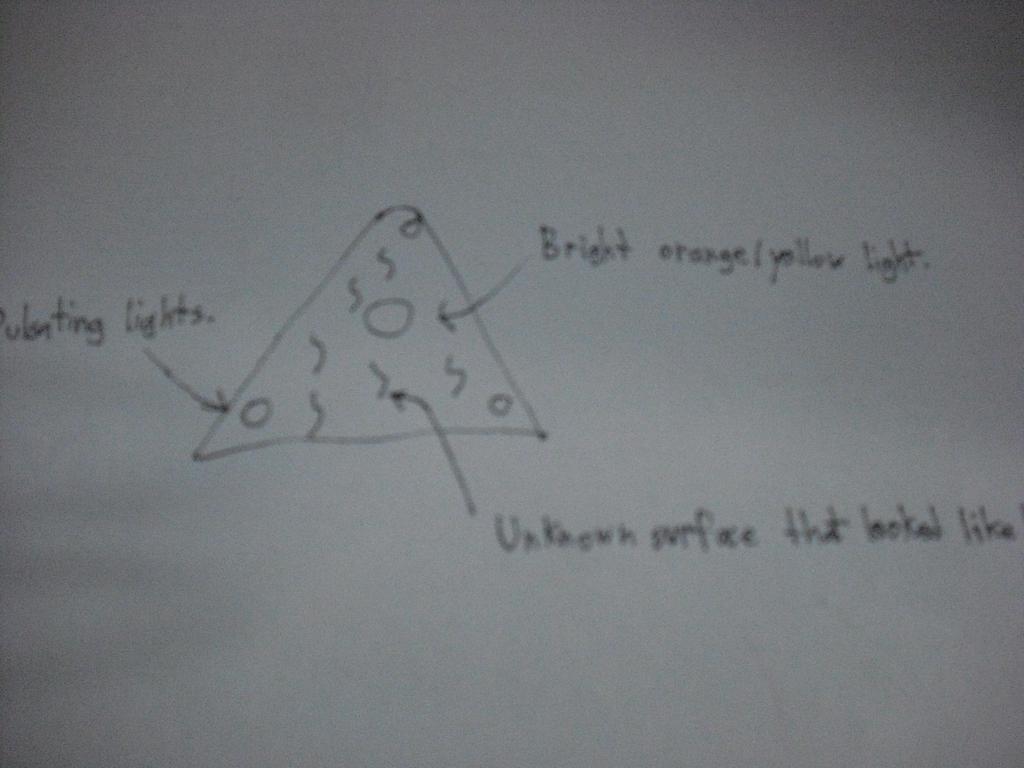 Bright orange/yellow light.
lights.
Unknown surface that looked like